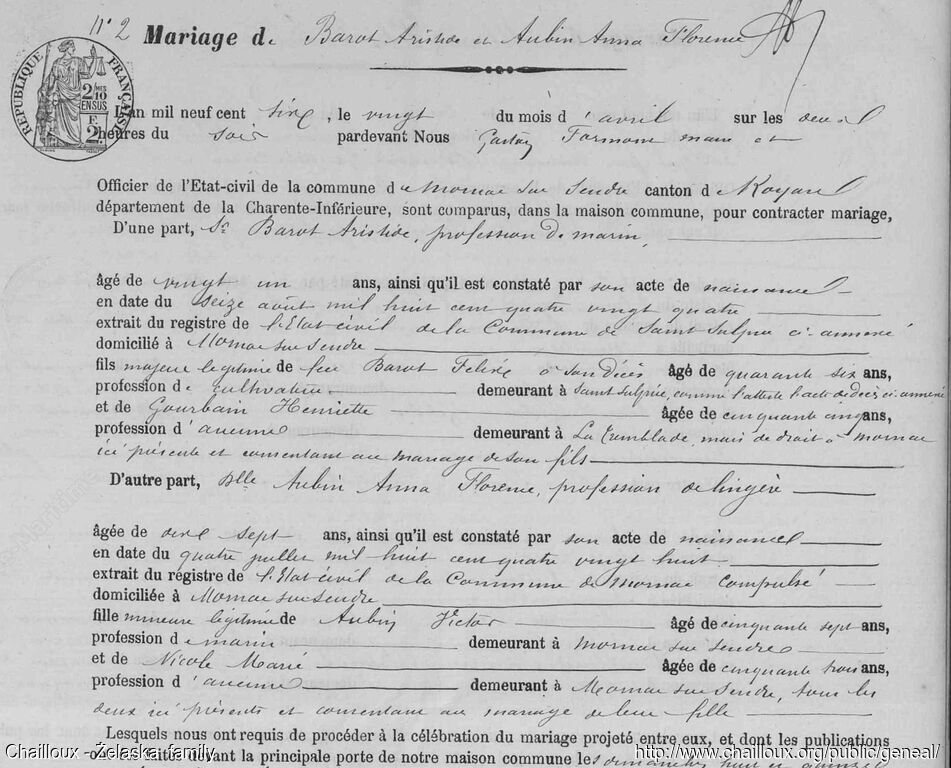 N° 2 Mariage de Barot Aristide et Aubin Anna Florence
RÉPUBLIQUE FRANÇAISE
2/10 EN SUS
2F
L'an mil neuf cent six, le vingt du mois d'avril sur les deux
heures du soir pardevant Nous maire et
Officier de l'Etat-civil de la commune de Mornac sur Seudre canton de Royan
département de la Charente-Inférieure, sont comparus, dans la maison commune, pour contracter mariage,
D'une part, Sr Barot Aristide, profession de marin,
âgé de vingt un ans, ainsi qu'il est constaté par son acte de naissance
en date du seize août mil huit cent quatre vingt quatre
extrait du registre de l'Etat civil de la Commune de Saint Sulpice ci-annexé
domicilié à Mornac sur Seudre
fils majeur légitime de feu Barot Felix à son décès âgé de quarante six ans,
profession de cultivateur demeurant à Saint Sulpice, comme l'atteste l'acte de décès ci-annexé
et de Gourbain Henriette âgée de cinquante cinq ans,
profession d'aucune demeurant à La Tremblade, mais de droit à Mornac
ici présente et consentant au mariage de son fils
D'autre part, Dlle Aubin Anna Florence, profession de lingère
âgée de dix sept ans, ainsi qu'il est constaté par son acte de naissance
en date du quatre juillet mil huit cent quatre vingt huit
extrait du registre de l'Etat civil de la Commune de Mornac compulsé
domiciliée à Mornac sur Seudre
fille mineure légitime de Aubin Victor âgé de cinquante sept ans,
profession de marin demeurant à Mornac sur Seudre
et de Nicole Marie âgée de cinquante trois ans,
profession d'aucune demeurant à Mornac sur Seudre, tous les
deux ici présents et consentant au mariage de leur fille
Lesquels nous ont requis de procéder à la célébration du mariage projeté entre eux, et dont les publications
ont été faites devant la principale porte de notre maison commune les dimanches huit et quinze
Chailloux - Želaska family http://www.chailloux.org/public/geneal/